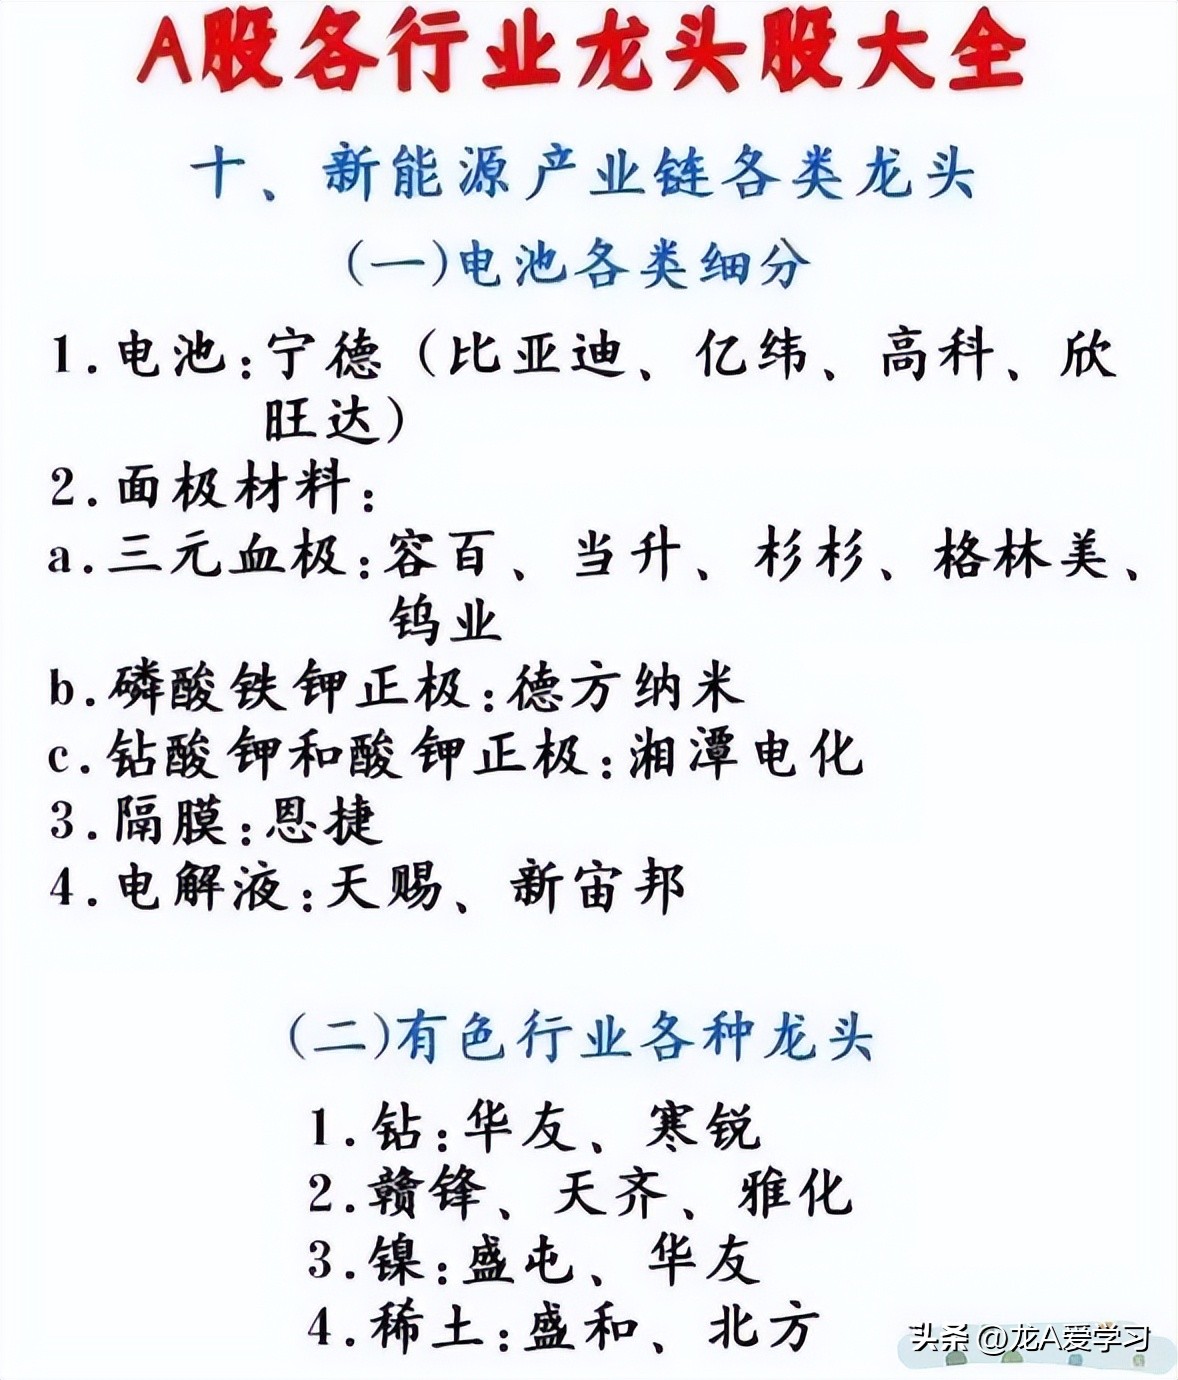 A股各行业龙头股大全
十、新能源产业链各类龙头
(一)电池各类细分
1.电池:宁德(比亚迪、亿纬、高科、欣
旺达)
2.面极材料:
a.三元血极:容百、当升、杉杉、格林美、
钨业
b.磷酸铁钾正极:德方纳米
c.钻酸钾和酸钾正极:湘潭电化
3.隔膜:恩捷
4.电解液:天赐、新宙邦
(二)有色行业各种龙头
1.钻:华友、寒锐
2.赣锋、天齐、雅化
3.镍:盛屯、华友
4.稀土:盛和、北方
头条 @龙A爱学习